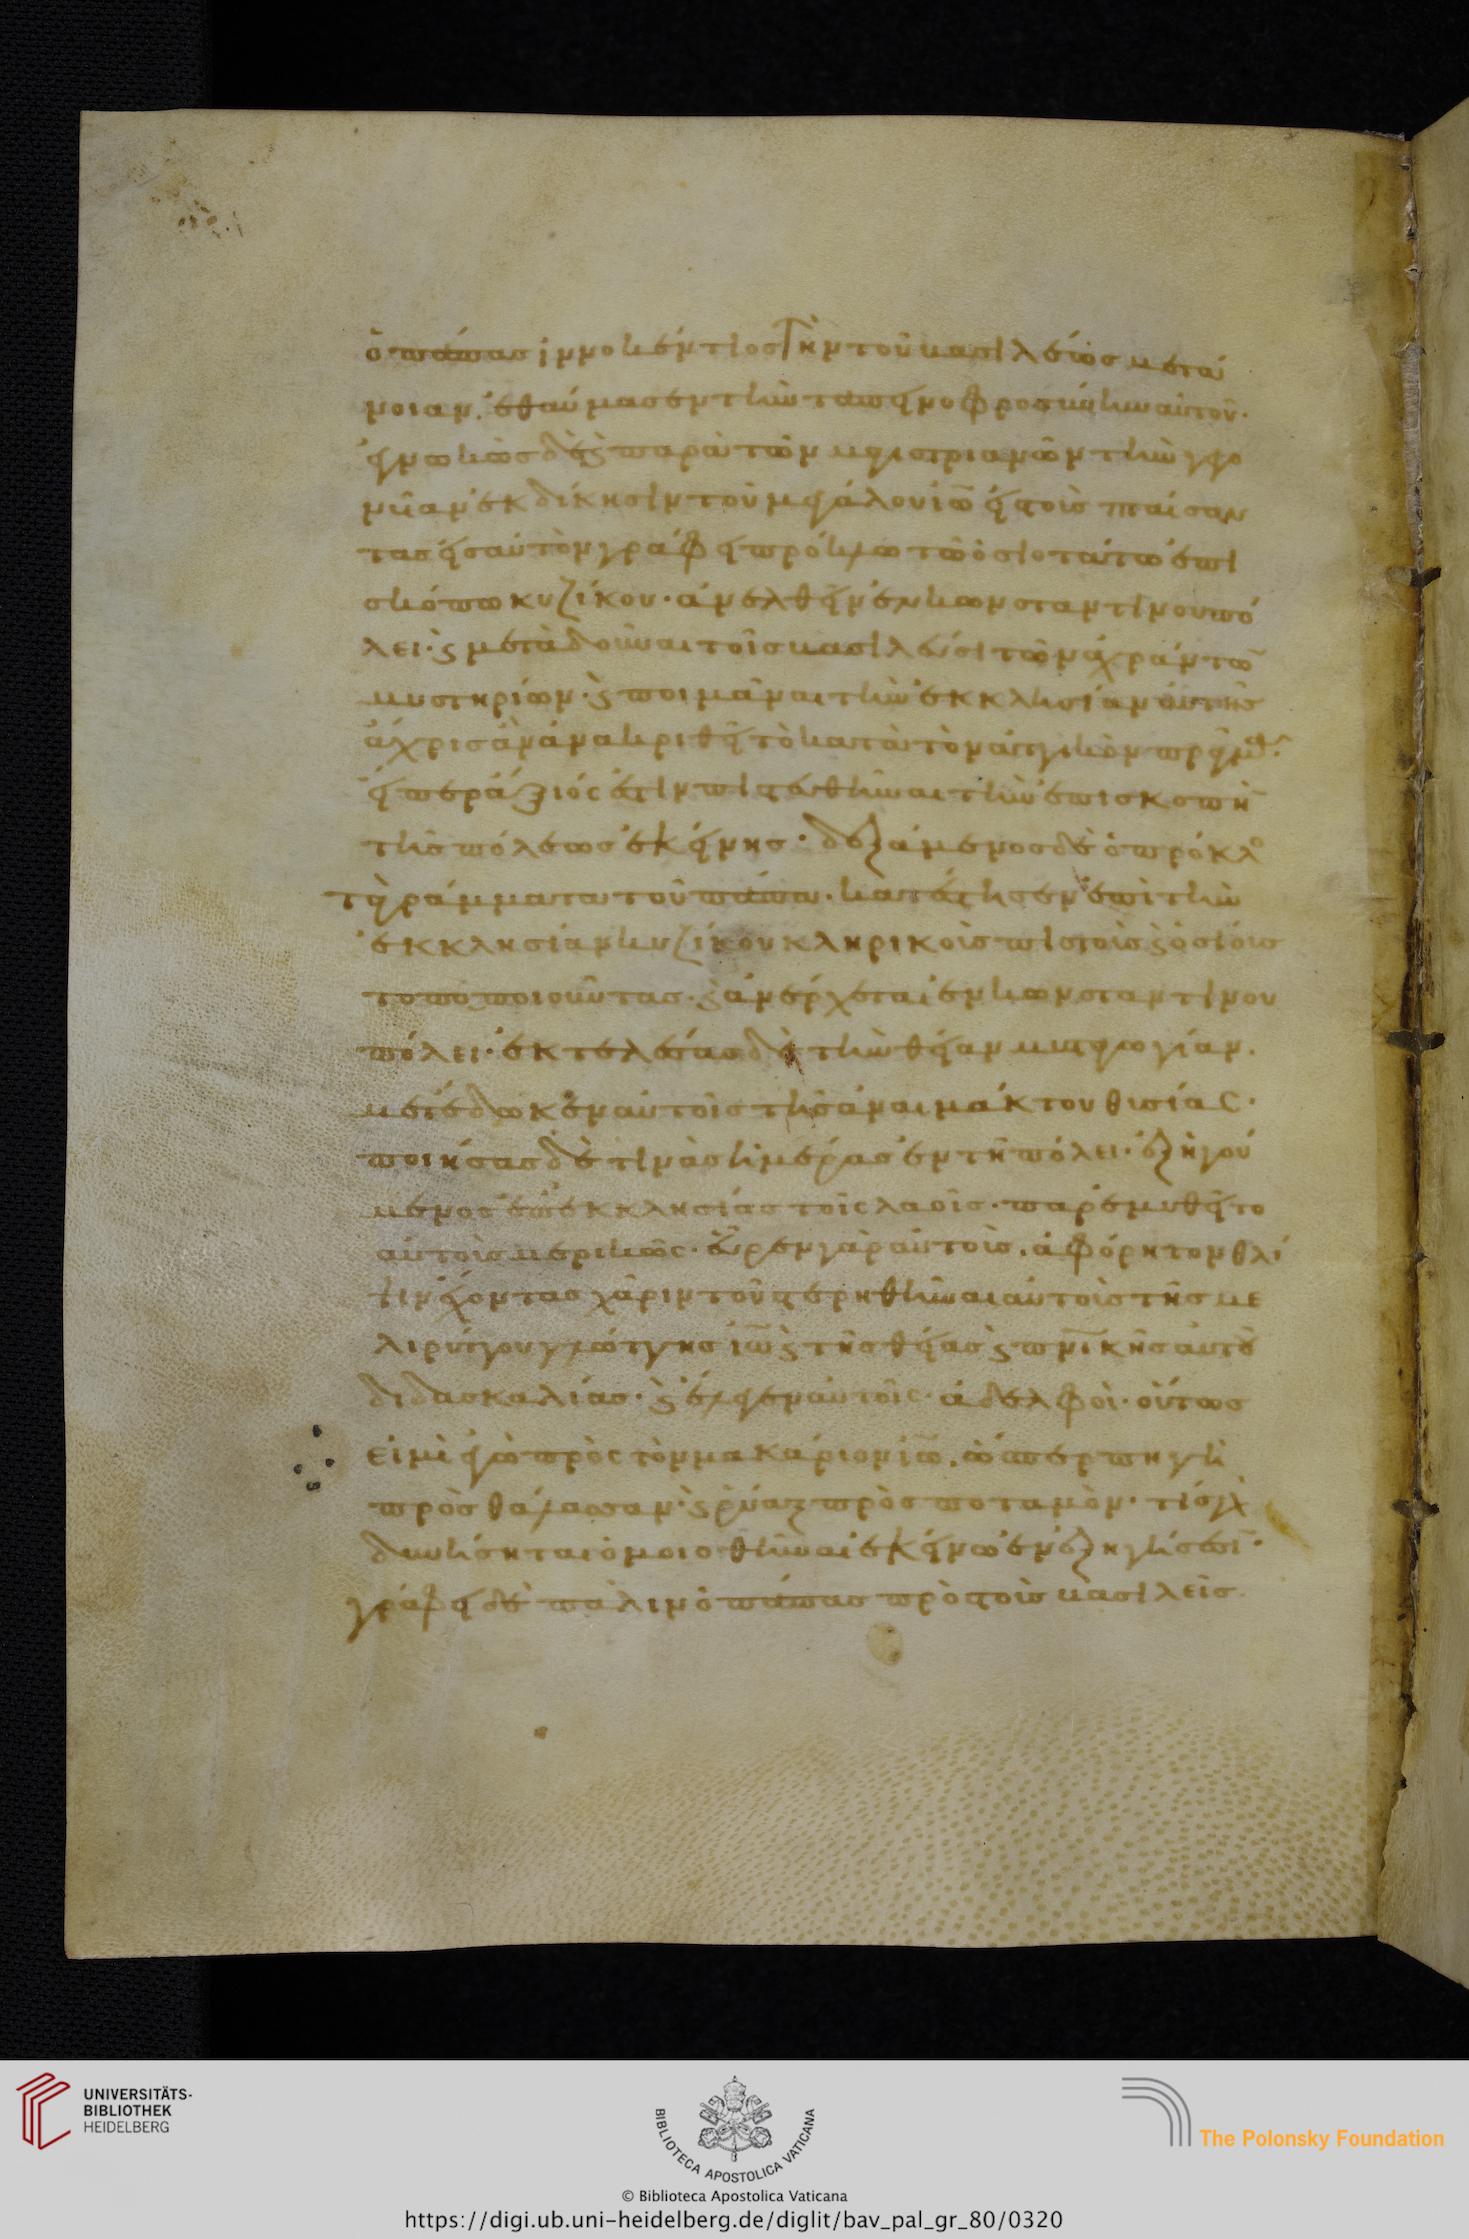 ὁ πάπας ἰννοκέντιος τὴν τοῦ βασιλέως μετά
νοιαν. ἐθαύμασεν τὴν ταπεινοφροσύνην αὐτοῦ.
γνωκὼς δὲ ϗ παρὰ τῶν μαγιστριανῶν τὴν γενο
μέναν ἐκδίκησιν τοῦ μεγάλου ἰω εἰς τοὺς πταίσαν
τας εἰς αὐτὸν γράφει πρόκλω τῶ ὁσιοτάτω ἐπι
σκόπω κυζίκου. ἀνελθεῖν ἐν κωνσταντίνου πό
λει. ϗ μεταδοῦναι τοῖς βασιλεῦσι τῶν ἀχράντω
μυστηρίων. ϗ ποιμᾶναι τὴν ἐκκλησίαν αὐτῆς
ἄχρις ἂν ἀνακριθῆ τὸ κατὰ τὸν ἀττικὸν πρᾶγμα.
εἴπερ ἄξιός ἐστιν πιστευθῆναι τὴν ἐπισκοπὴ
τῆς πόλεως ἐκείνης. δεξάμενος δὲ ὁ πρόκλο
τὰ γράμματα τοῦ πάπα. κατέστησεν ἐπὶ τὴν
ἐκκλησίαν κυζίκου κληρικοὺς πιστοὺς ϗ ὁσίους
τοποποιοῦντας. ϗ ἀνέρχεται ἐν κωνσταντίνου
πόλει. ἐκτελέσας δὲ τὴν θείαν μυσταγωγίαν.
μετέδωκεν αὐτοῖς τῆς ἀναιμάκτου θυσίας.
ποιήσας δὲ τινὰς ἡμέρας ἐν τῆ πόλει. ἐξηγού
μενος ἐπ' ἐκκλησίας τοῖς λαοῖς. παρεμυθεῖτο
αὐτοὺς μερικῶς. εὗρεν γὰρ αὐτοὺς. ἀφόρητον θλί
ψιν ἔχοντας χάριν τοῦ στερηθῆναι αὐτοὺς τῆς με
λιρύτου γλώττης ἰω ϗ τῆς θείας ϗ πνικῆς αὐτοῦ
διδασκαλίας. ϗ ἔλεγεν αὐτοῖς. ἀδελφοὶ. οὕτως
εἰμὶ ἐγὼ πρὸς τὸν μακάριον ἰω. ὥσπερ πηγὴ
πρὸς θάλασσαν. ϗ ῥύαξ πρὸς ποταμὸν. τίς γὰρ
δυνήσηται ὁμοιοθῆναι ἐκείνω ἐν ἐξηγήσει.
γράφει δὲ πάλιν ὁ πάπας πρὸς τοὺς βασιλεῖς
UNIVERSITÄTS-
BIBLIOTHEK
HEIDELBERG
BIBLIOTECA APOSTOLICA VATICANA
The Polonsky Foundation
© Biblioteca Apostolica Vaticana
https://digi.ub.uni-heidelberg.de/diglit/bav_pal_gr_80/0320